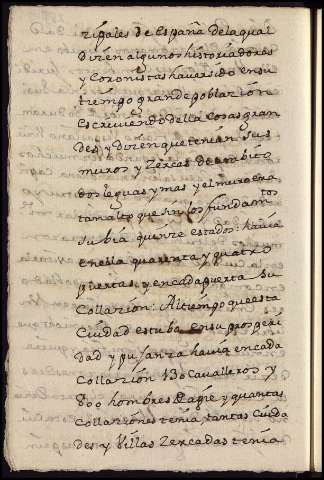 zipales de España dela qual
dizen algunos historiadores
y Coronistas haver sido en su
tiempo grande poblazion
Escriviendo della Cosas gran
des y dizen que tenian sus
muros y Zercas de ambito
dos leguas y mas y el muro era
tan alto que sin los fundam^tos
subia quinze estados: havia
en ella quarenta y quatro
puertas, y en cada puerta su
Collazion: Al tiempo que esta
Ciudad estuba en su prosperi
dad y pujanza havia en cada
Collazion 130 Cavalleros y
800 hombres de apie y quantas
Collaziones tenia, tantas Ciuda
des y Villas Zercadas tenia